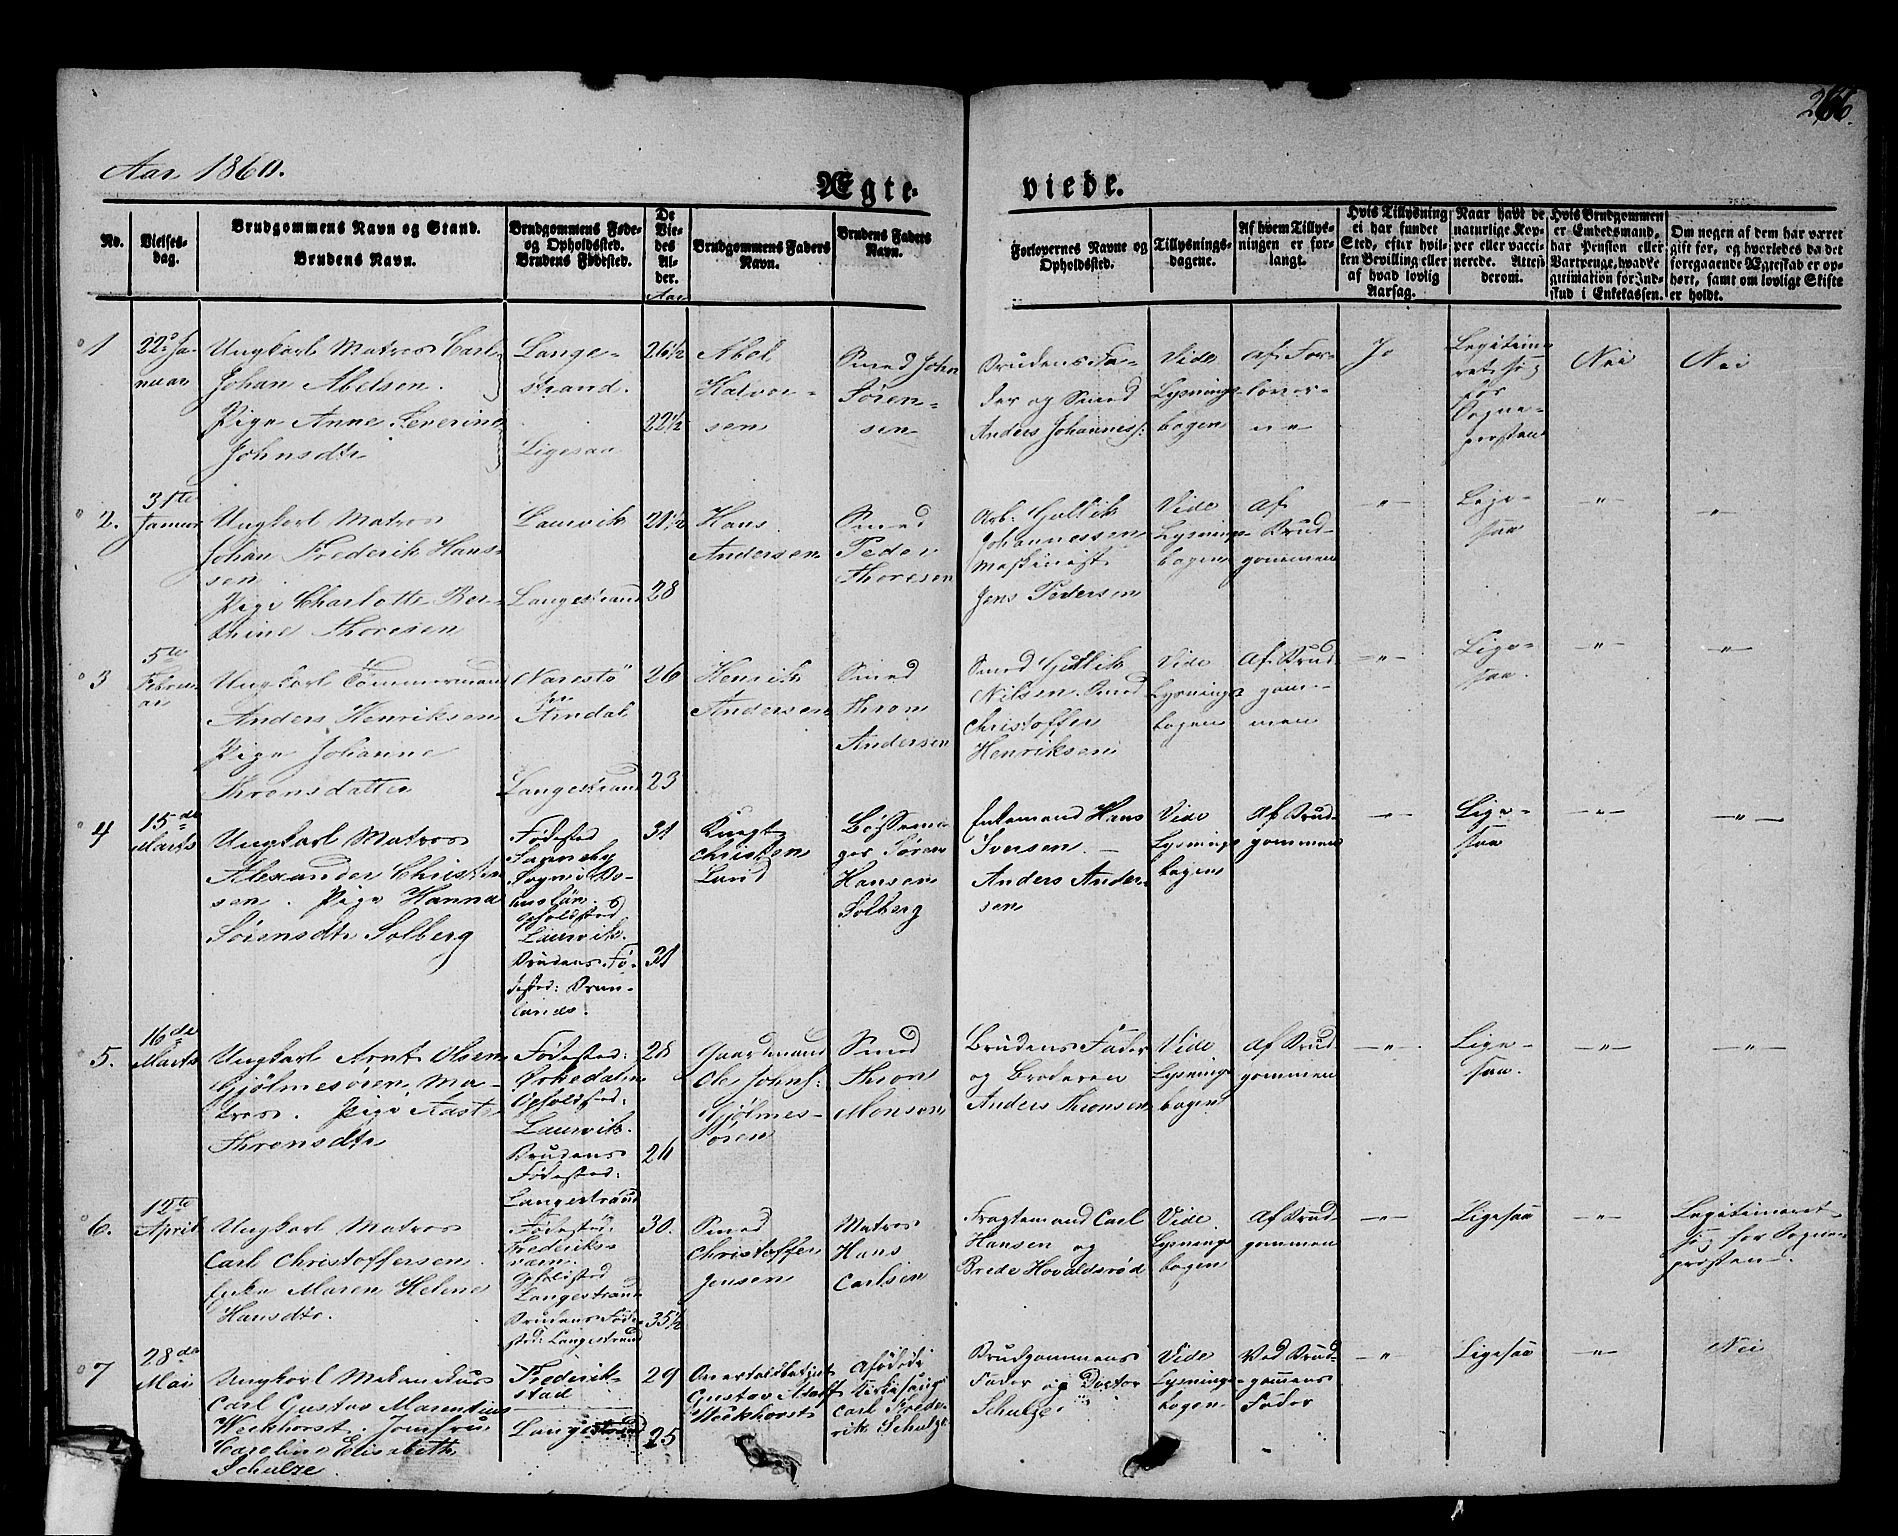 266.
Aar 1860.
Ægte-
viede.
No.
Vielses-
dag.
Brudgommens Navn og Stand.
Brudens Navn.
Brudgommens Føde-
og Opholdssted.
Brudens Fødested.
De
Vie-
des
Al-
der.
Aar
Brudgommens Faders
Navn.
Brudens Faders
Navn.
Forlovernes Navne og
Opholdssted.
Tillysnings-
dagene.
Af hvem Tillys-
ningen er for-
langt.
Hvis Tillysning
ei har fundet
Sted, efter hvil-
ken Bevilling eller
af hvad lovlig
Aarsag.
Naar havt de
naturlige Kop-
per eller vacci-
nerede. Attest
derom.
Hvis Brudgommen
er Embedsmand,
har Pension eller
Vartpenge, hvadfe
guimation for Ind-
skud i Enkekassen.
Om nogen af dem har været
gift før, og hvorledes da det
foregaaende Ægteskab er op-
hørt, samt om lovligt Skifte
er holdt.
1
22de Ja-
nuar
Ungkarl Matros Carl
Johan Abelsen.
Pige Anne Severine
Johnsdtr
Lange-
strand.
Ligesaa
26 1/2
22 1/2
Abel
Halvor-
sen
Smed John
Sören-
sen
Brudens Fa-
der og Smed
Anders Johanness:
Vide
Lysnings-
bogen
Af For-
lover-
ne
Jo
Legitime-
ret sig
for
Sogne-
presten
Nei
Nei
2.
31te
Januar
Ungkarl Matros
Johan Frederik Hans-
sen
Pige Charlotte Ber-
thine Thoresen
Laurvik
Langestrand
21 1/2
28
Hans
Andersen
Smed
Peder
Thoresen
Arb: Gullik
Johannessen
Maskinist
Jens Pedersen
Vide
Lysnings-
bogen
Af
Brud-
gommen
-"-
Lige-
saa
-"-
-"-
3
5te
Februar
Ungkarl Tömmermand
Anders Henriksen
Pige Johanne
Thronsdatter
Narestö
pr
Arndal
Langestrand
26
23
Henrik
Andersen
Smed
Thron
Andersen
Smed Gullik
Nilsen. Smed
Christoffer
Henriksen
Vide
Lysnings-
bogen
Af Brud-
gom-
men
-"-
Lige-
saa.
-"-
-"-
4
15de
Marts
Ungkarl Matros
Alexander Christen-
sen. Pige Hanna
Sörensdtr Solberg
Födested
Sogn i Bo-
huslän.
Opholdssted
Laurvik.
Brudens Fö-
dested: Brun-
landa.
31
31
Christen
Lund
Bössema-
ger Sören
Hansen
Solberg
Enkemand Hans
Iversen. —
Anders Ander-
sen
Vide
Lysnings-
bogen
Af Brud-
gommen
-"-
Lige-
saa
-"-
-"-
5.
16de
Marts
Ungkarl Arnt Olsen
Gjölmesören, Ma-
tros. Pige Aaste
Thronsdtr
Födested:
Örkedalen
Opholdsted:
Laurvik.
Brudens
Födested:
Langestrand
28
26
Gaardmand
Ole Johns:
Gjölmes-
sören
Smed
Thron
Monsen
Brudens Fader
og Broderen
Anders Thronsen
Vide
Lysnings-
bogen
Af Brud-
gommen
-"-
Lige-
saa.
-"-
-"-
6.
12te
April
Ungkarl Matros
Carl Christoffersen.
Enke Maren Helene
Hansdtr.
Födested:
Frederiks-
værn.
Opholdsted
Langestrand
Brudens Föde-
sted: Langestrand
30.
35 1/2
Smed
Christoffer
Jensen
Matros
Hans
Carlsen
Fragtemand Carl
Hansen og
Brede Hovaldsröd
Vide
Lysnings-
bogen
Af Brud-
gommen
-"-
Ligesaa
-"-
Legitimeret
sig for Sogne-
presten.
7
28de
Mai
Ungkarl Mekanikus
Carl Gustav Marentius
Weckhorst. Jomfru
Caroline Elisabeth
Schulze.
Frederik-
stad
Langestrand
29
25
Gustav Adolf
Weckhorst
Afdöde
Carl Frede-
rik Schulze
Brudgommens
Fader og Doctor
Schulze
Vide
Lysnings-
bogen
Ved Brud-
gommens
Fader
-"-
Ligesaa
-"-
Nei